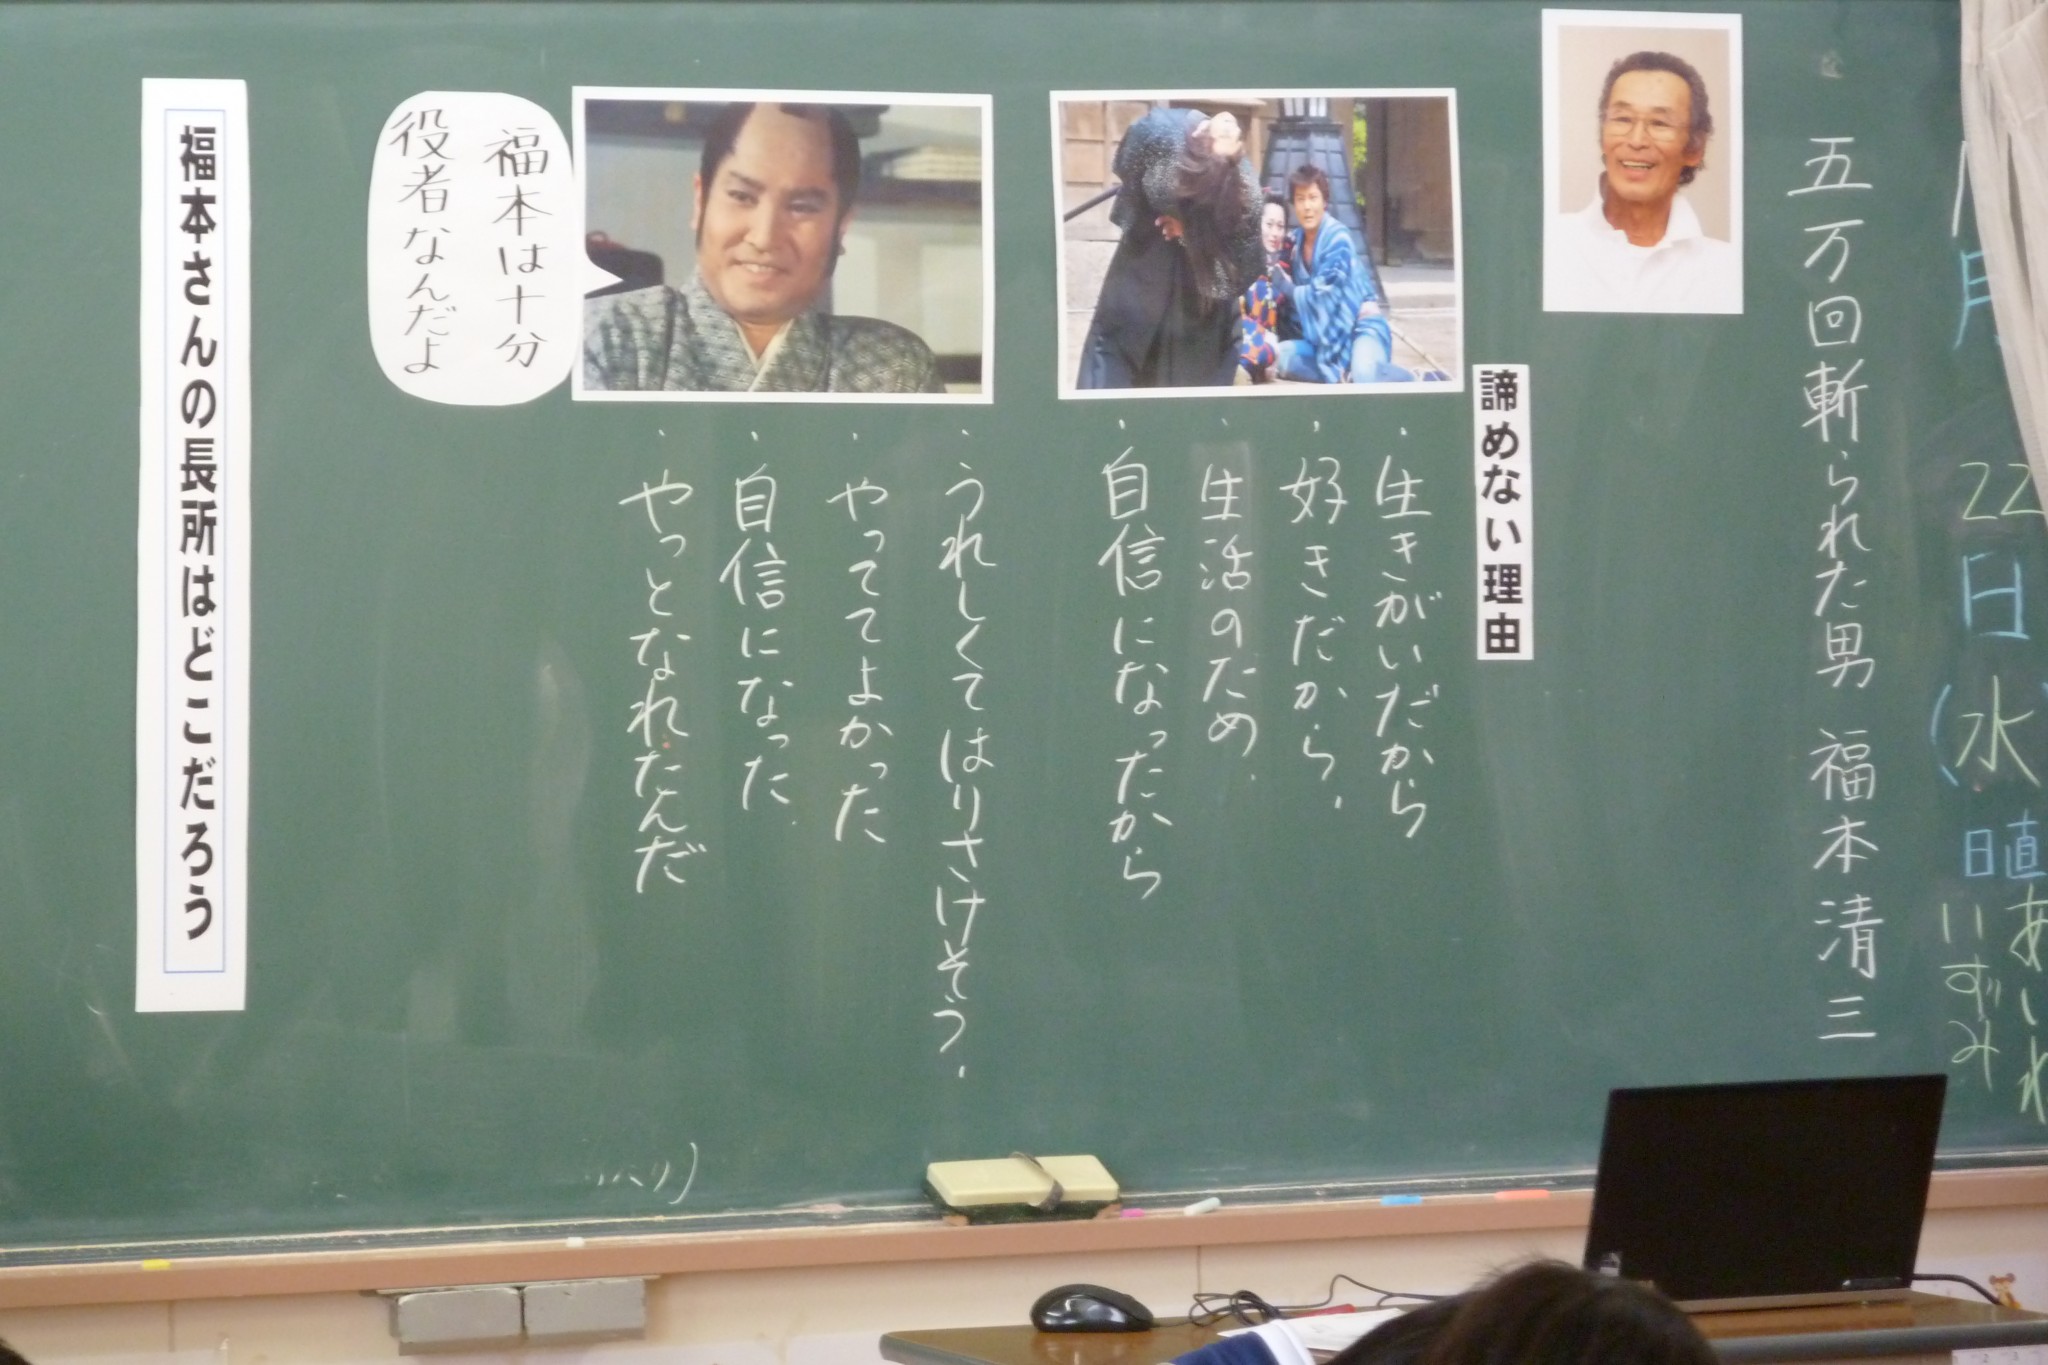 月
22
日
(水
日直
あいれ
いずみ
五万回斬られた男 福本清三
諦めない理由
・生きがいだから
・好きだから、
・生活のため、
・自信になったから
福本は十分
役者なんだよ
・うれしくてはりさけそう、
・やっててよかった
・自信になった、
・やっとなれたんだ
福本さんの長所はどこだろう